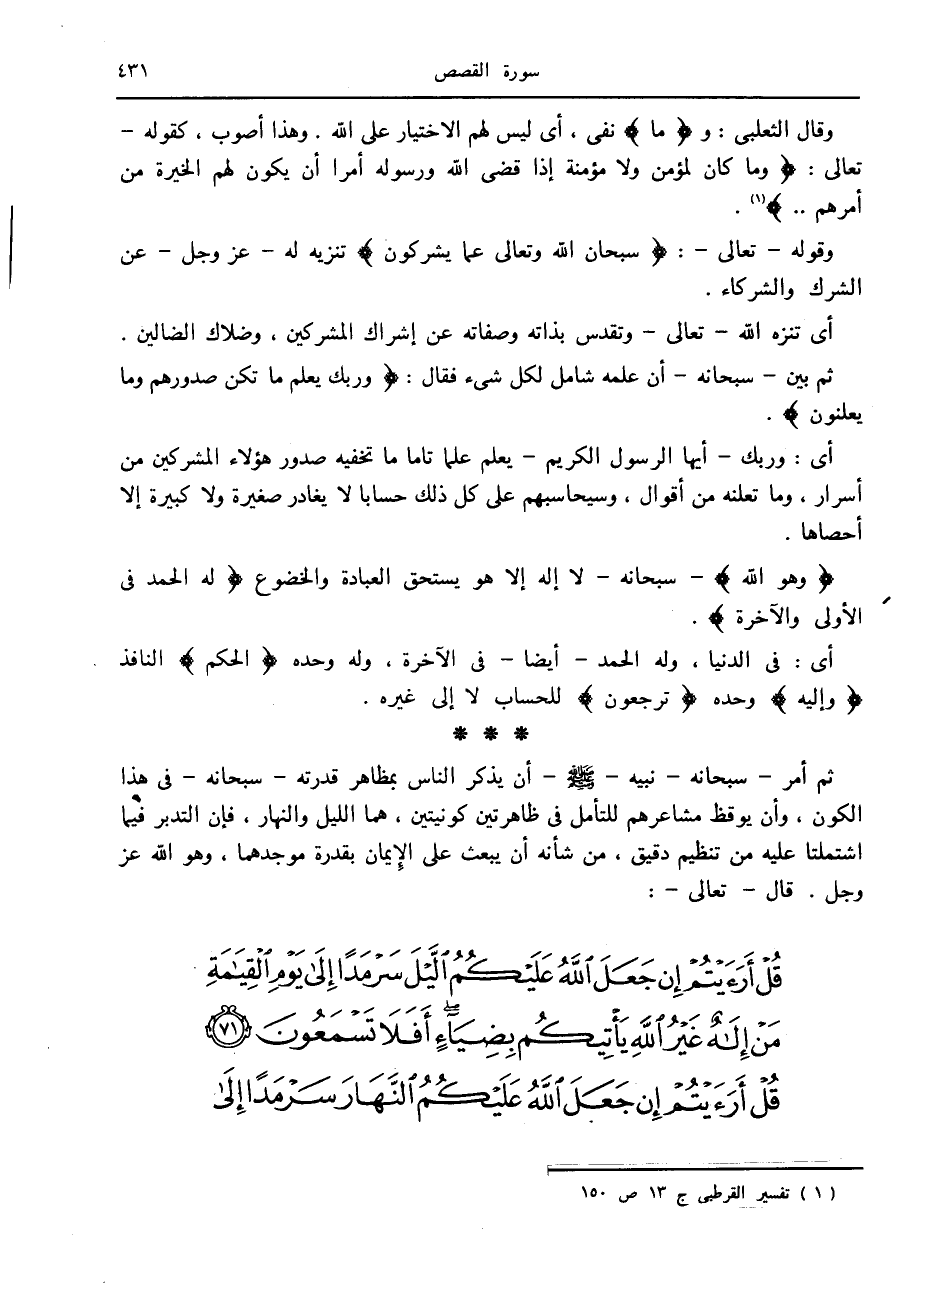 سورة القصص ٤٣١
وقال الثعلبى : و ﴿ ما ﴾ نفى ، أى ليس لهم الاختيار على الله . وهذا أصوب ، كقوله –
تعالى : ﴿ وما كان لمؤمن ولا مؤمنة إذا قضى الله ورسوله أمرا أن يكون لهم الخيرة من
أمرهم .. ﴾(١) .
وقوله – تعالى – : ﴿ سبحان الله وتعالى عما يشركون ﴾ تنزيه له – عز وجل – عن
الشرك والشركاء .
أى تنزه الله – تعالى – وتقدس بذاته وصفاته عن إشراك المشركين ، وضلاك الضالين .
ثم بين – سبحانه – أن علمه شامل لكل شىء فقال : ﴿ وربك يعلم ما تكن صدورهم وما
يعلنون ﴾ .
أى : وربك – أيها الرسول الكريم – يعلم علما تاما ما تخفيه صدور هؤلاء المشركين من
أسرار ، وما تعلنه من أقوال ، وسيحاسبهم على كل ذلك حسابا لا يغادر صغيرة ولا كبيرة إلا
أحصاها .
﴿ وهو الله ﴾ – سبحانه – لا إله إلا هو يستحق العبادة والخضوع ﴿ له الحمد فى
الأولى والآخرة ﴾ .
أى : فى الدنيا ، وله الحمد – أيضا – فى الآخرة ، وله وحده ﴿ الحكم ﴾ النافذ
﴿ وإليه ﴾ وحده ﴿ ترجعون ﴾ للحساب لا إلى غيره .
* * *
ثم أمر – سبحانه – نبيه – ﷺ – أن يذكر الناس بمظاهر قدرته – سبحانه – فى هذا
الكون ، وأن يوقظ مشاعرهم للتأمل فى ظاهرتين كونيتين ، هما الليل والنهار ، فإن التدبر فيما
اشتملتا عليه من تنظيم دقيق ، من شأنه أن يبعث على الإيمان بقدرة موجدهما ، وهو الله عز
وجل . قال – تعالى – :
قُلْ أَرَءَيْتُمْ إِن جَعَلَ ٱللَّهُ عَلَيْكُمُ ٱلَّيْلَ سَرْمَدًا إِلَىٰ يَوْمِ ٱلْقِيَٰمَةِ
مَنْ إِلَٰهٌ غَيْرُ ٱللَّهِ يَأْتِيكُم بِضِيَآءٍ ۖ أَفَلَا تَسْمَعُونَ ٧١
قُلْ أَرَءَيْتُمْ إِن جَعَلَ ٱللَّهُ عَلَيْكُمُ ٱلنَّهَارَ سَرْمَدًا إِلَىٰ
( ١ ) تفسير القرطبى ج ١٣ ص ١٥٠